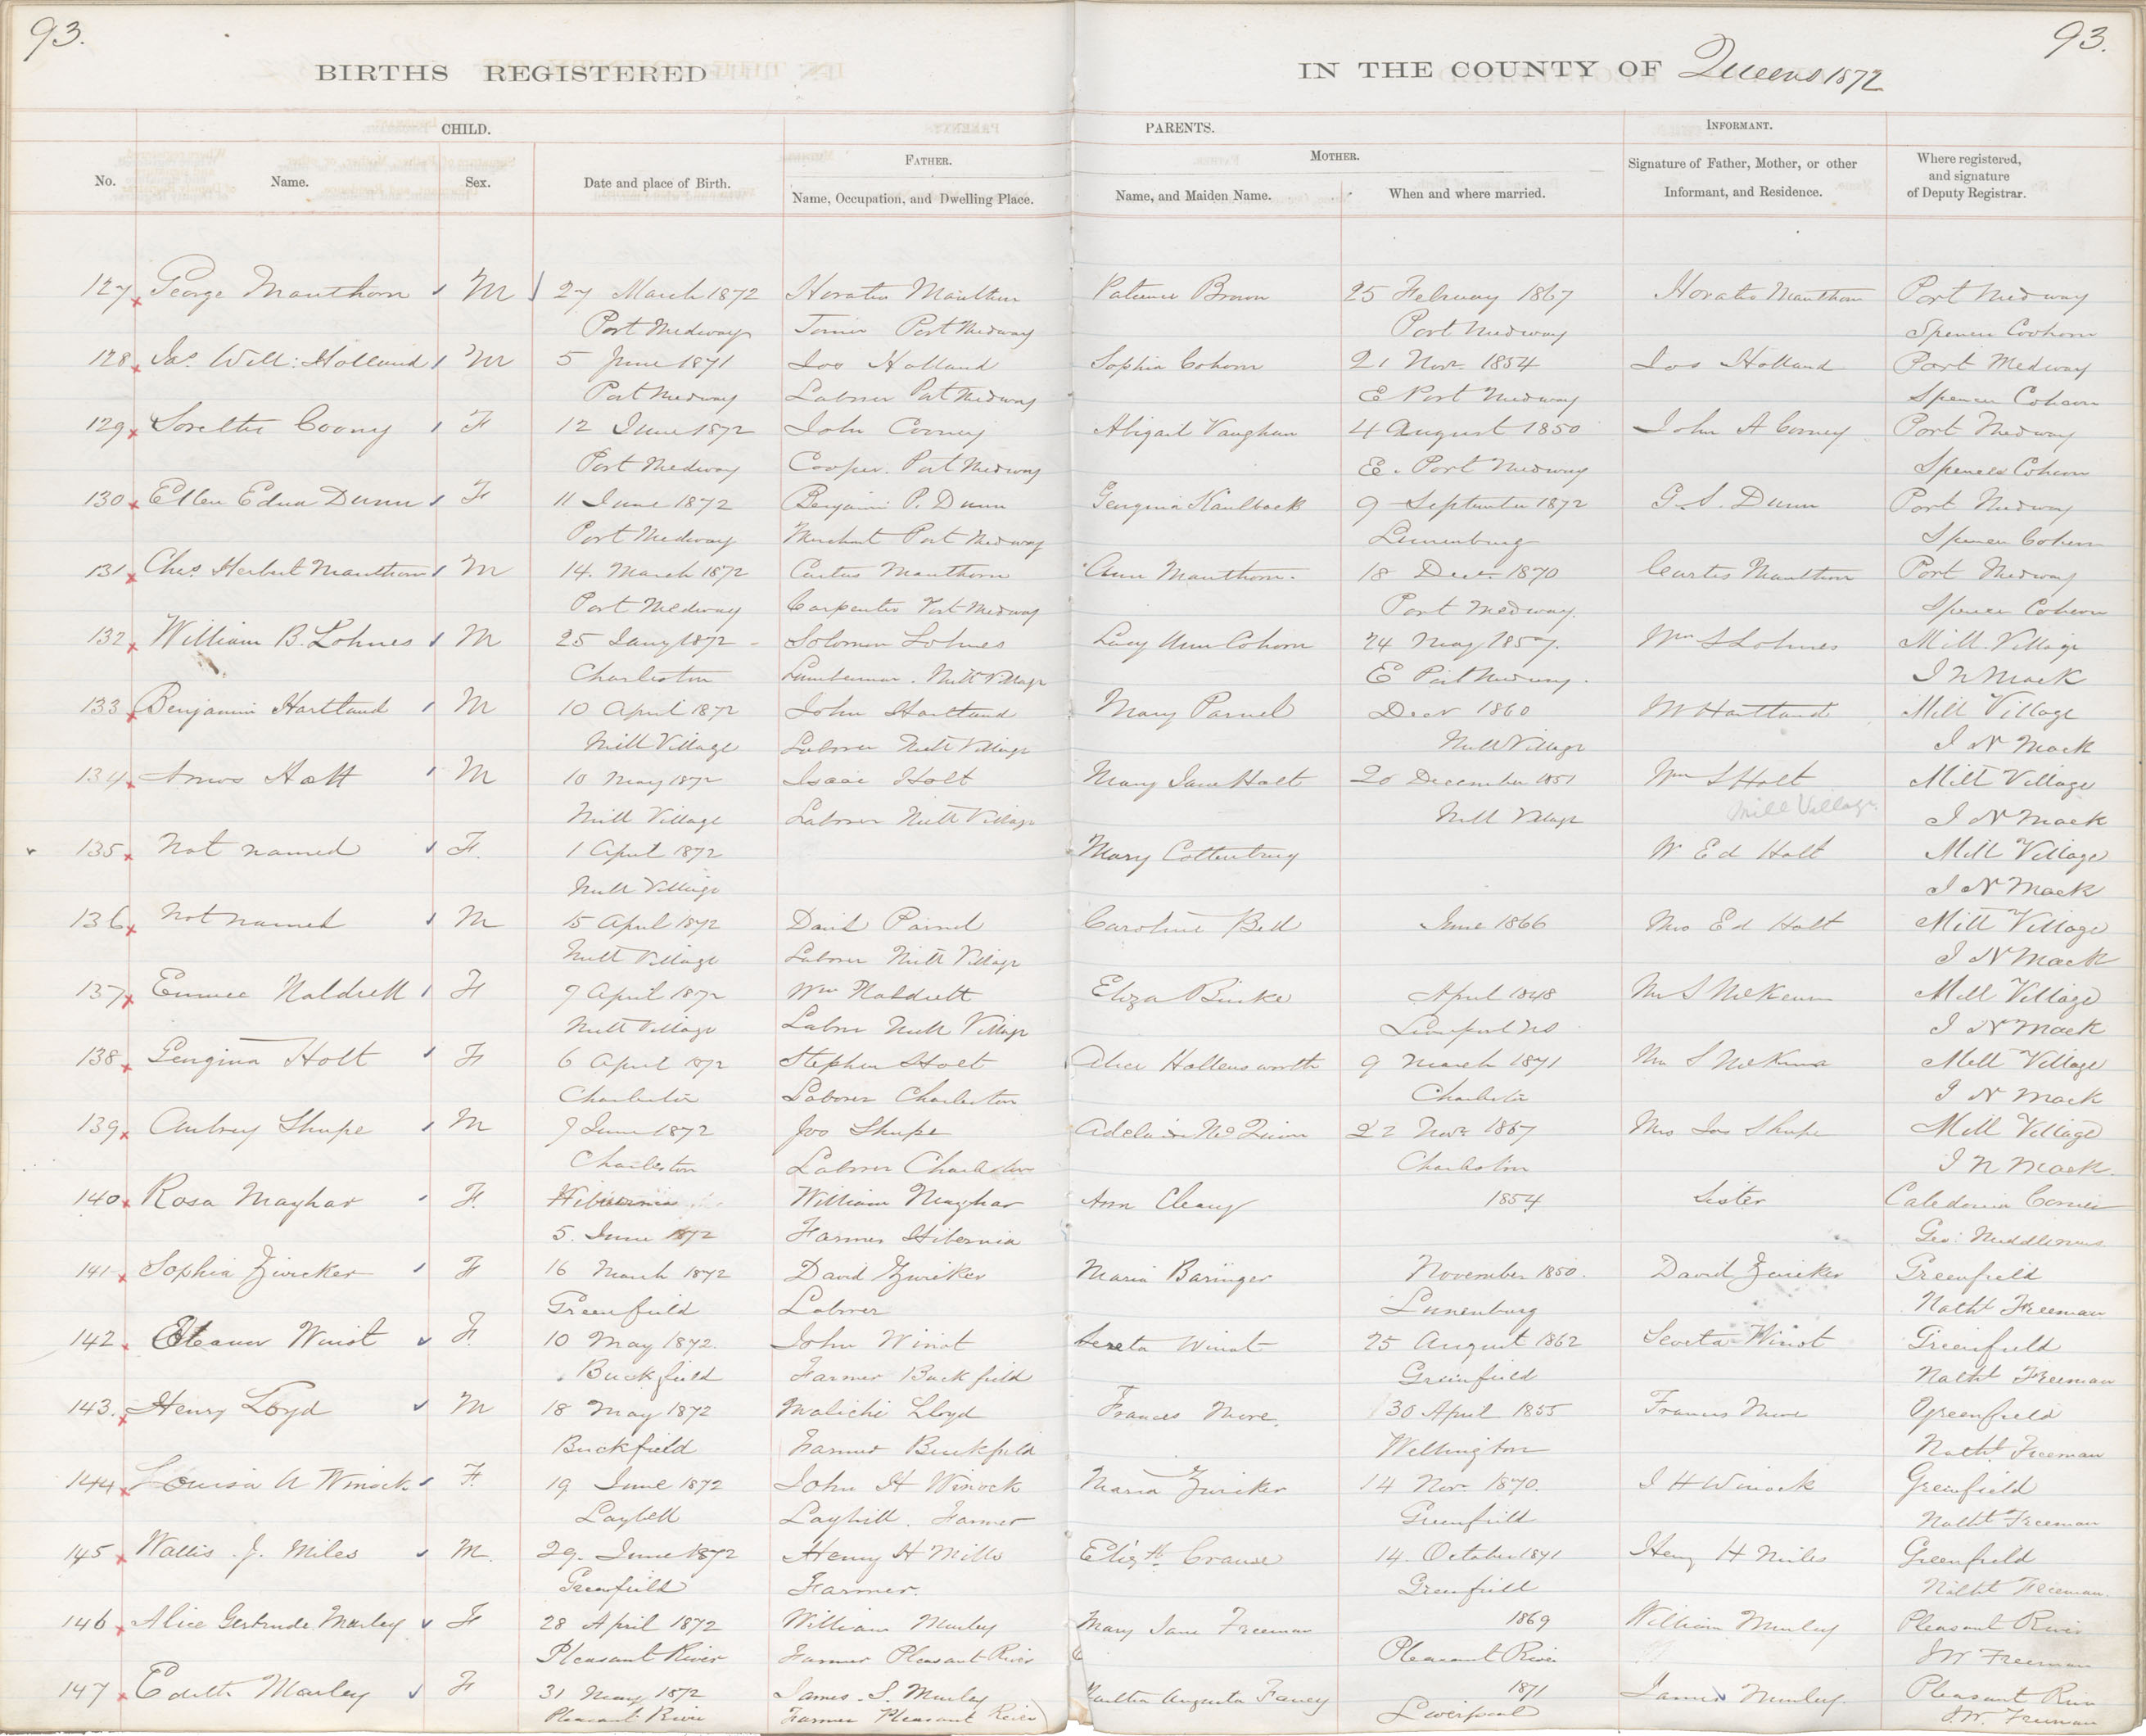 93.
93.
BIRTHS REGISTERED IN THE COUNTY OF Queens 1872
CHILD. PARENTS. INFORMANT.
FATHER. MOTHER.
No. Name. Sex. Date and place of Birth. Name, Occupation, and Dwelling Place. Name, and Maiden Name. When and where married. Signature of Father, Mother, or other Informant, and Residence. Where registered, and signature of Deputy Registrar.
127 George Manthorn M 27 March 1872 Horatio Manthorn Patience Brown 25 February 1867 Horatio Manthorn Port Medway
Port Medway Port Medway Port Medway Spencer Cohoon
128 Jas. Will: Holland M 5 June 1871 Jos Holland Sophia Cohoon 21 Novr 1854 Jos Holland Port Medway
Port Medway Laborer Port Medway E Port Medway Spencer Cohoon
129 Cooney F 12 June 1872 John Cooney Abigail Vaughan 4 August 1850 John A Cooney Port Medway
Port Medway Cooper. Port Medway E. Port Medway Spencer Cohoon
130 Ellen Edna Dunn F 11 June 1872 Benjamin P. Dunn Georgina Kaulback 9 September 1872 G. S. Dunn Port Medway
Port Medway Merchant Port Medway Lunenburg Spencer Cohoon
131 Chas. Herbert Manthorn M 14. March 1872 Curtus Manthorn Ann Manthorn. 18 Decr. 1870 Curtis Manthorn Port Medway
Port Medway Carpenter Port Medway Port Medway. Spencer Cohoon
132 William B. Lohnes M 25 Jany 1872 Solomon Lohnes Lucy Ann Cohoon 24 May 1857. Wm S Lohnes Mill Village
Charleston Lumberman. Mill Village E Port Medway. I N Mack
133 Benjamin Hartland M 10 April 1872 John Hartland Mary Parnel Decr 1860 M Hartland Mill Village
Mill Village Laborer Mill Village Mill Village I N Mack
134 Amos Holt M 10 May 1872 Isaac Holt Mary Jane Holt 20 December 1851 Wm S Holt Mill Village
Mill Village Laborer Mill Village Mill Village Mill Village I N Mack
135 Not named F. 1 April 1872 Mary W Ed Holt Mill Village
Mill Village I N Mack
136 Not named M 15 April 1872 David Parnel Caroline Bell June 1866 Mrs Ed Holt Mill Village
Mill Village Laborer Mill Village I N Mack
137 F 7 April 1872 Wm Eliza Burke April 1848 Mill Village
Mill Village Laborer Mill Village Liverpool NS I N Mack
138 Georgina Holt F 6 April 1872 Stephen Holt Alice Hollensworth 9 March 1871 Mill Village
Charleston Laborer Charleston Charleston I N Mack
139 Aubrey Shupe M 7 June 1872 Jos Shupe Adelaide 22 Novr 1867 Mrs Jos Shupe Mill Village
Charleston Laborer Charleston Charleston I N Mack.
140 Rosa Mayhar F. Hibernia William Mayhar Ann Cleary 1854 Sister Caledonia Corner
5. June 1872 Farmer Hibernia Geo: Middlemas
141 Sophia Zwicker F 16 March 1872 David Zwicker Maria Baringer November 1850. David Zwicker Greenfield
Greenfield Laborer Lunenburg Natht Freeman
142. Eleanor Winot F. 10 May 1872. John Winot Winot 25 August 1862 Winot Greenfield
Buckfield Farmer Buckfield Greenfield Natht Freeman
143. Henry Loyd M 18 May 1872 Malichi Lloyd Frances More. 30 April 1855 Frances More Greenfield
Buckfield Farmer Buckfield Wellington Natht. Freeman
144 Louisa A Winock F. 19 June 1872 John H Winock Maria Zwicker 14 Nov. 1870. J H Winock Greenfield
Layhill. Farmer Greenfield Natht Freeman
145 Wallis J. Miles M. 29. June 1872 Henry H Mills Elizth. Crause 14. October 1871 Heny H Miles Greenfield
Greenfield Farmer. Greenfield Natht Freeman.
146 Alice Gertrude Murley F 28 April 1872 William Murley Mary Jane Freeman 1869 William Murley Pleasant River
Pleasant River Farmer Pleasant River Pleasant River J W Freeman
147 Edith Marley F 31 May 1872 James. S. Murley Augusta Fancy 1871 James Murley. Pleasant River
Pleasant River Farmer Pleasant River Liverpool J. W. Freeman